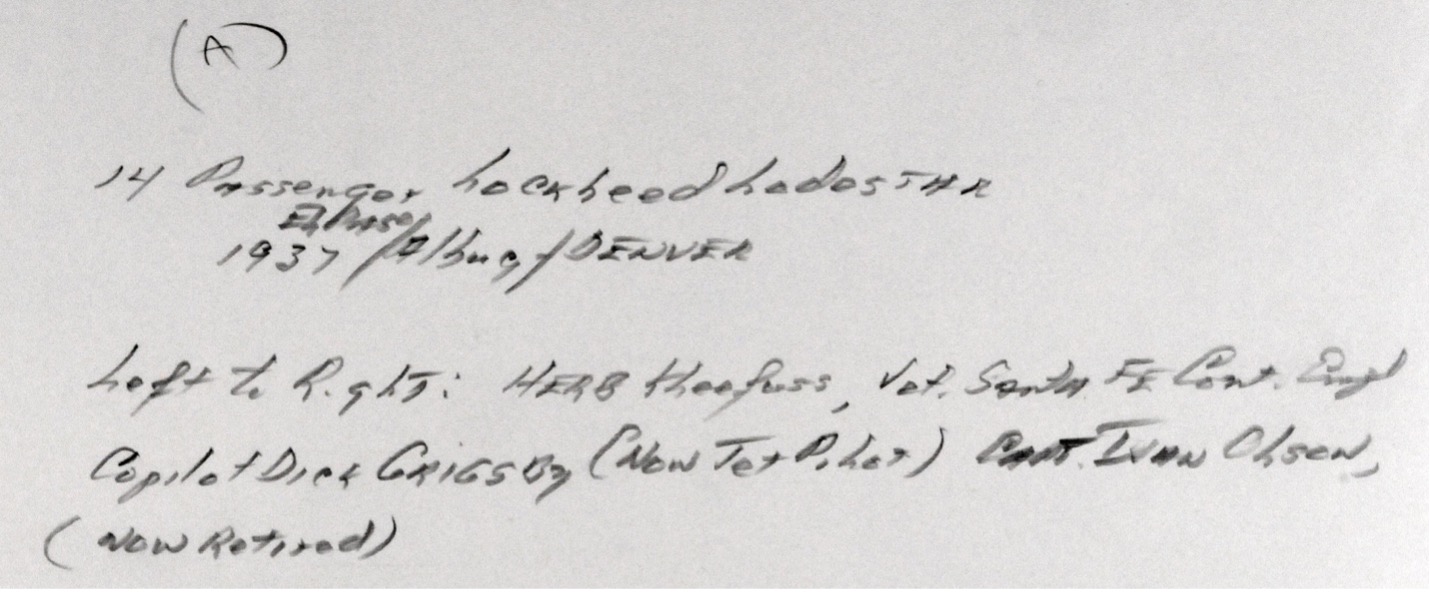 (A)
14 Passenger Lockheed Lodestar
El Paso
1937 / Albuq / DENVER
Left to Right: HERB Hoefuss, Vet. Santa FE Cont. Empl
Copilot Dick GRIGSBy (Now Jet Pilot) CAPT. IVAN Olson,
(Now Retired)